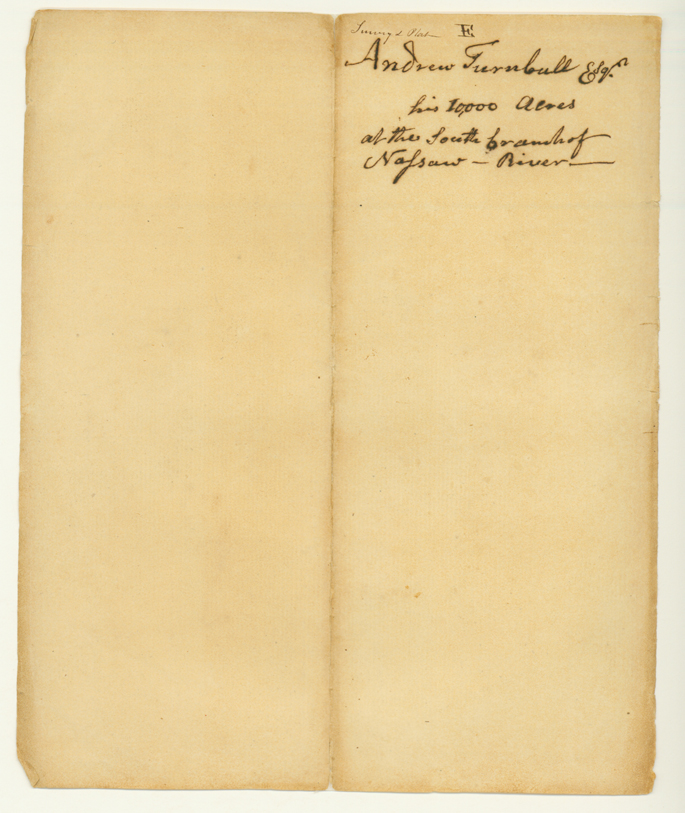 Survey & Plat E
Andrew Turnbull Esqr
his 10,000 Acres
at the South branch of
Nassaw – River —